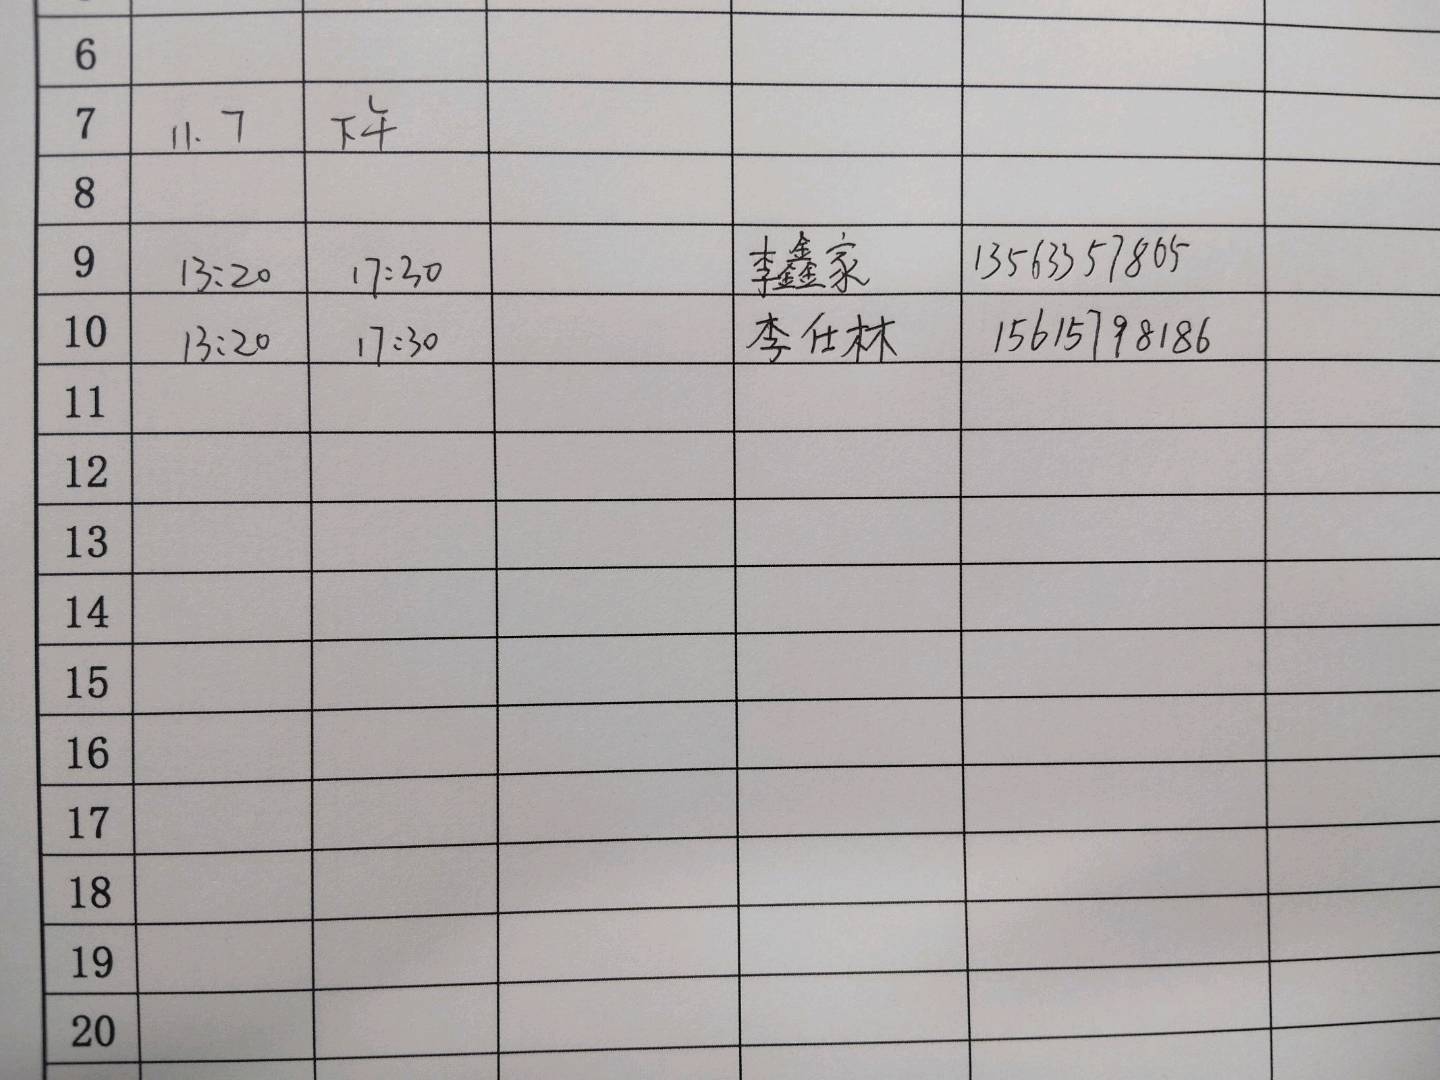 6
7 11.7 下午
8
9 13:20 17:30 李鑫家 13563357865
10 13:20 17:30 李仕林 15615798186
11
12
13
14
15
16
17
18
19
20